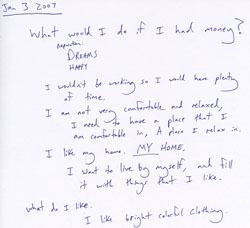 Jan 3 2007
What would I do if I had money?
DREAMS
HAPPY
I wouldn't be working so I would have plenty
of time.
I am not very comfortable and relaxed,
I need to have a place that I
am comfortable in, A place I relax in.
I like my home. MY HOME.
I want to live by myself, and fill
it with things that I like.
what do I like.
I like bright colorful clothing.